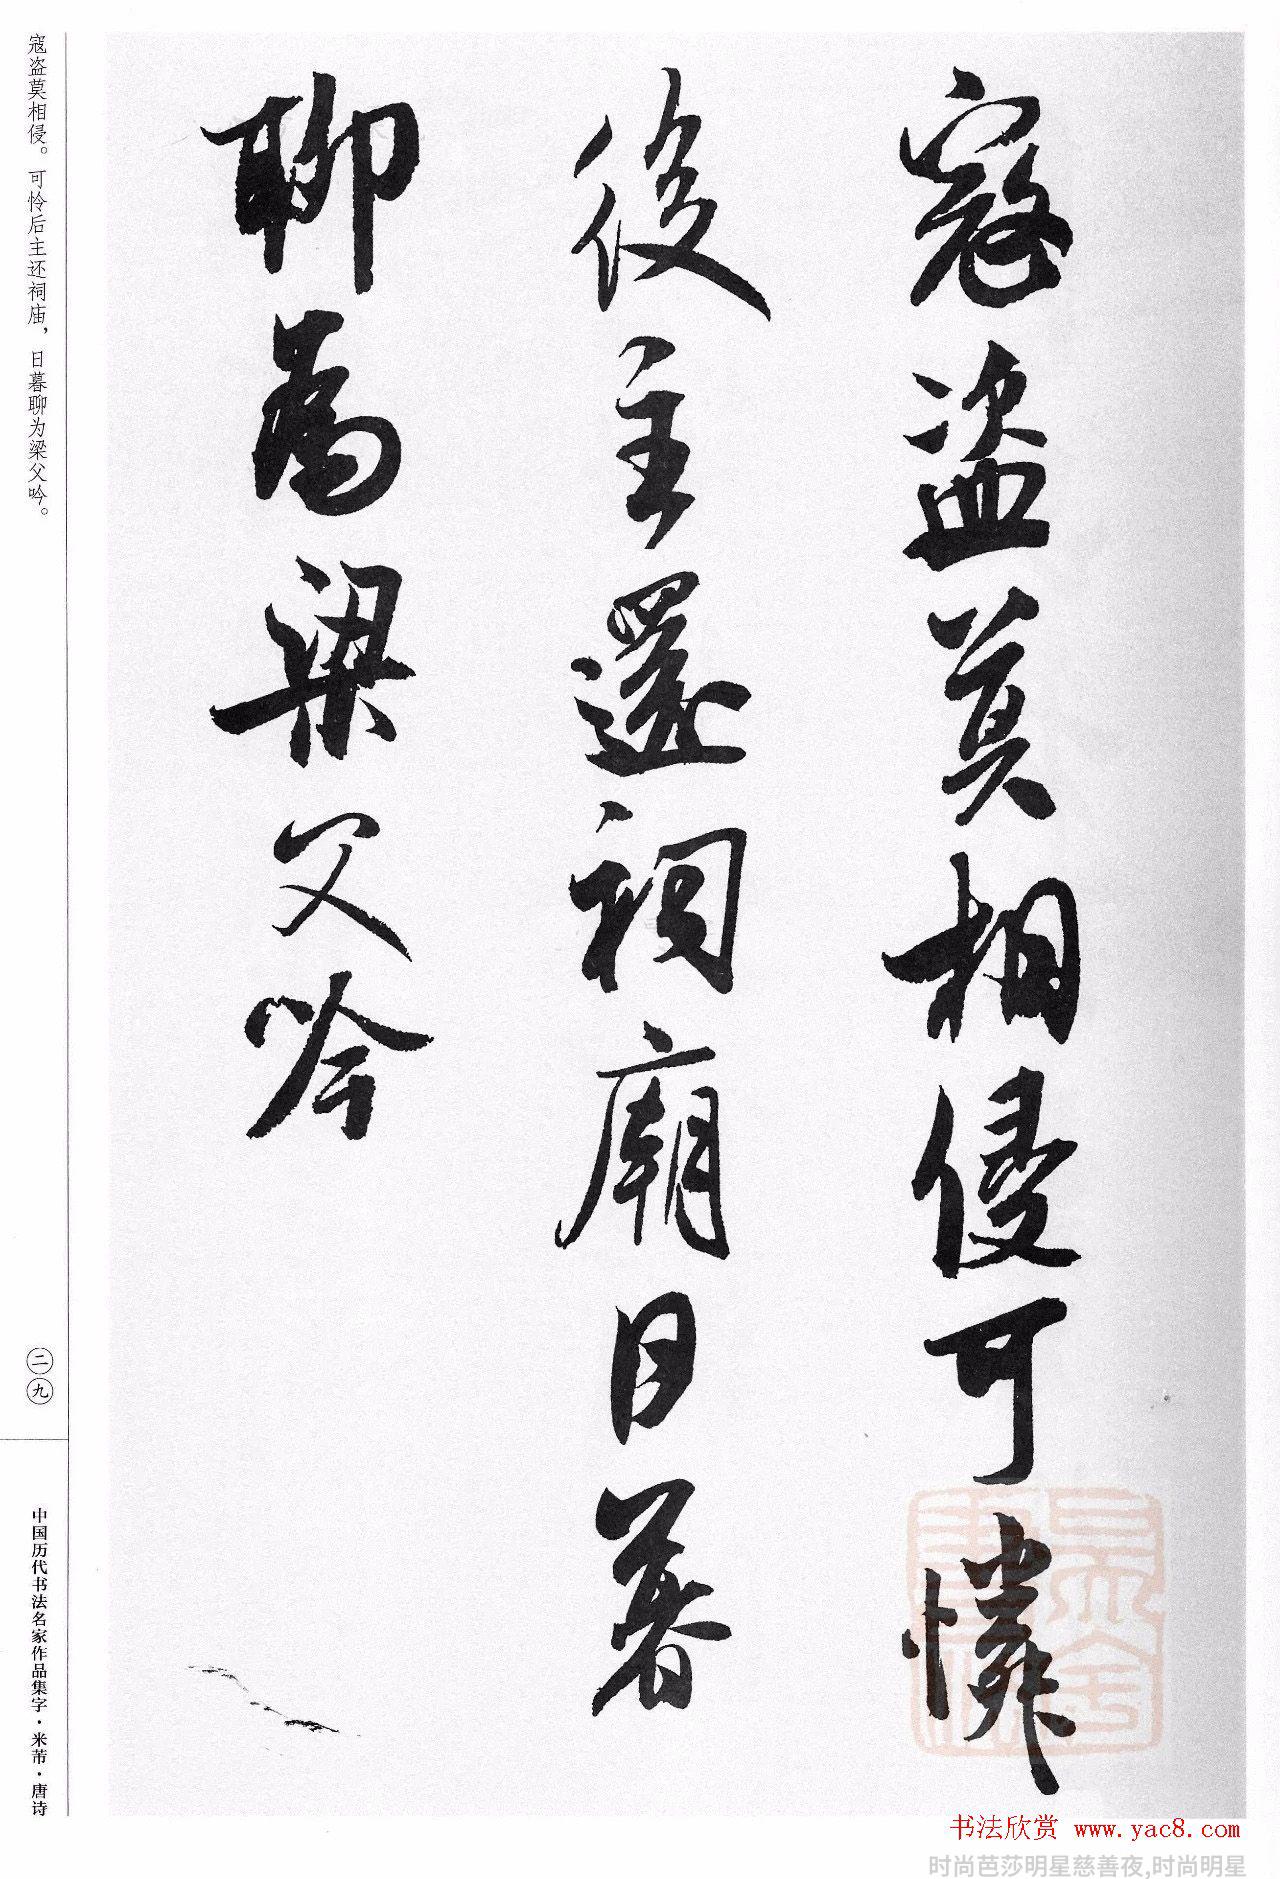 寇盗莫相侵可憐
後主還祠廟日暮
聊為梁父吟
寇盗莫相侵。可怜后主还祠庙，日暮聊为梁父吟。
二九
中国历代书法名家作品集字·米芾·唐诗
书法欣赏 www.yac8.com
时尚芭莎明星慈善夜,时尚明星